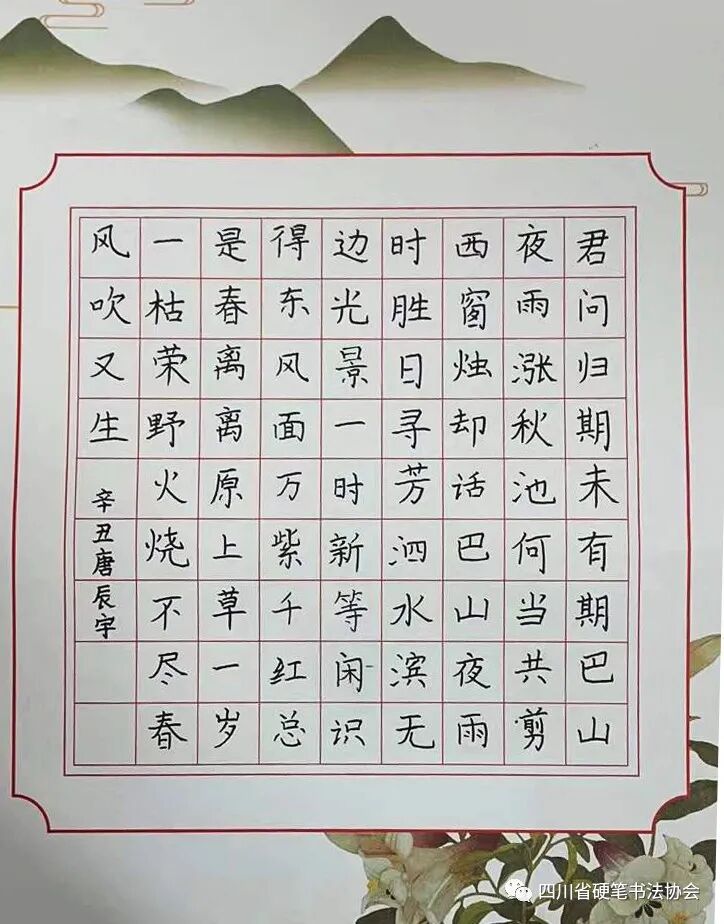 君问归期未有期巴山
夜雨涨秋池何当共剪
西窗烛却话巴山夜雨
时胜日寻芳泗水滨无
边光景一时新等闲识
得东风面万紫千红总
是春离离原上草一岁
一枯荣野火烧不尽春
风吹又生
辛丑唐辰宇
四川省硬笔书法协会